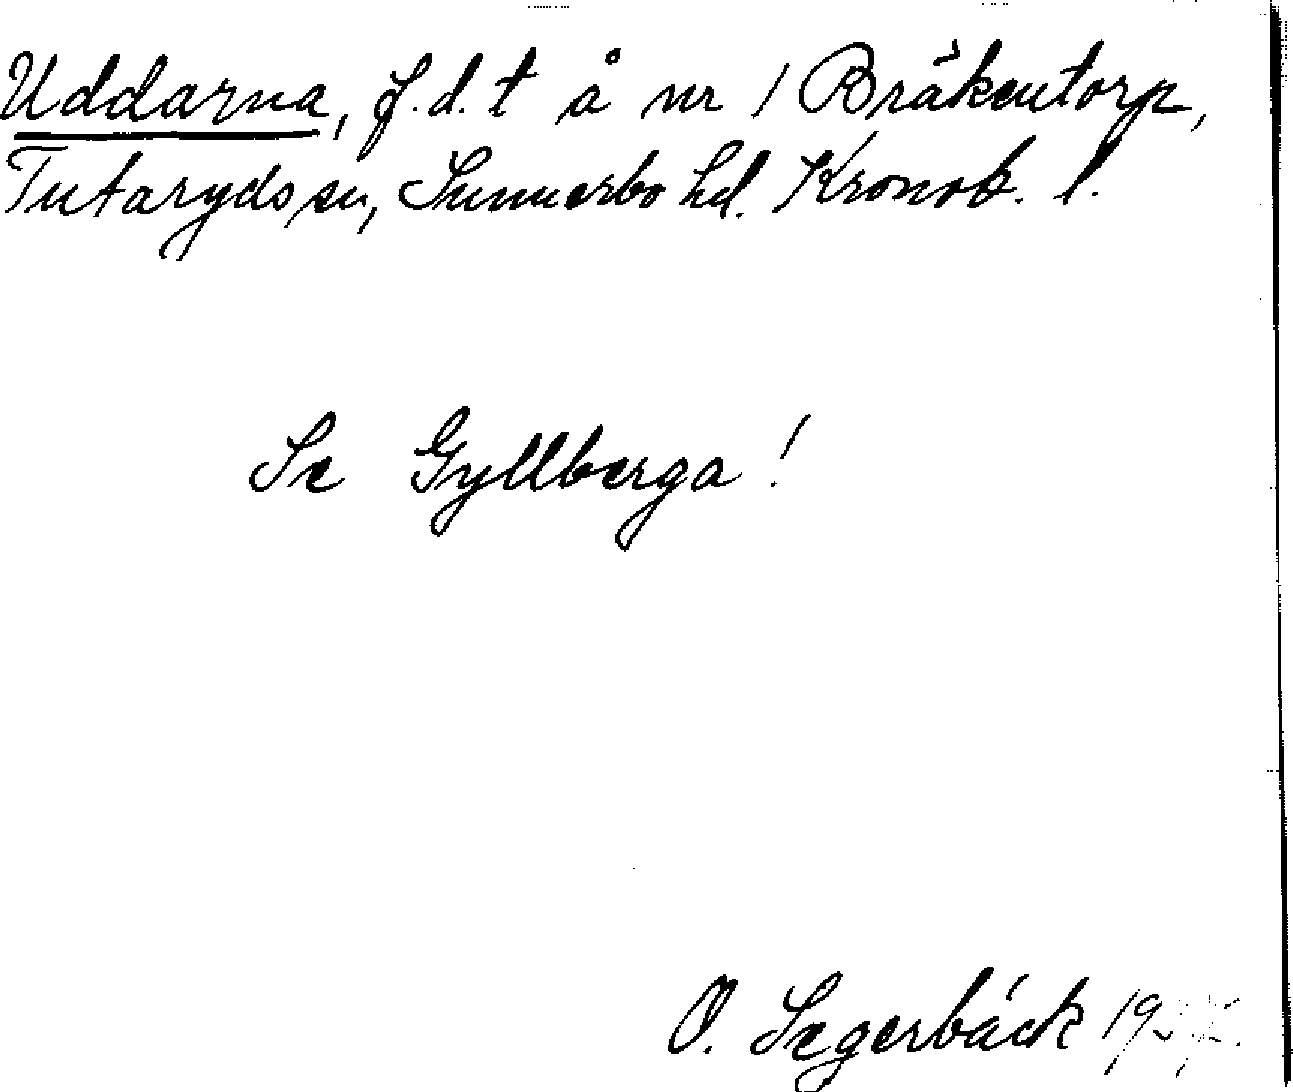 Uddarna, f.d. t å nr 1 Bräkentorp,
Tutaryds sn, Sunnerbo hd. Kronob. l.
Se Gyllberga!
O. Segerbäck